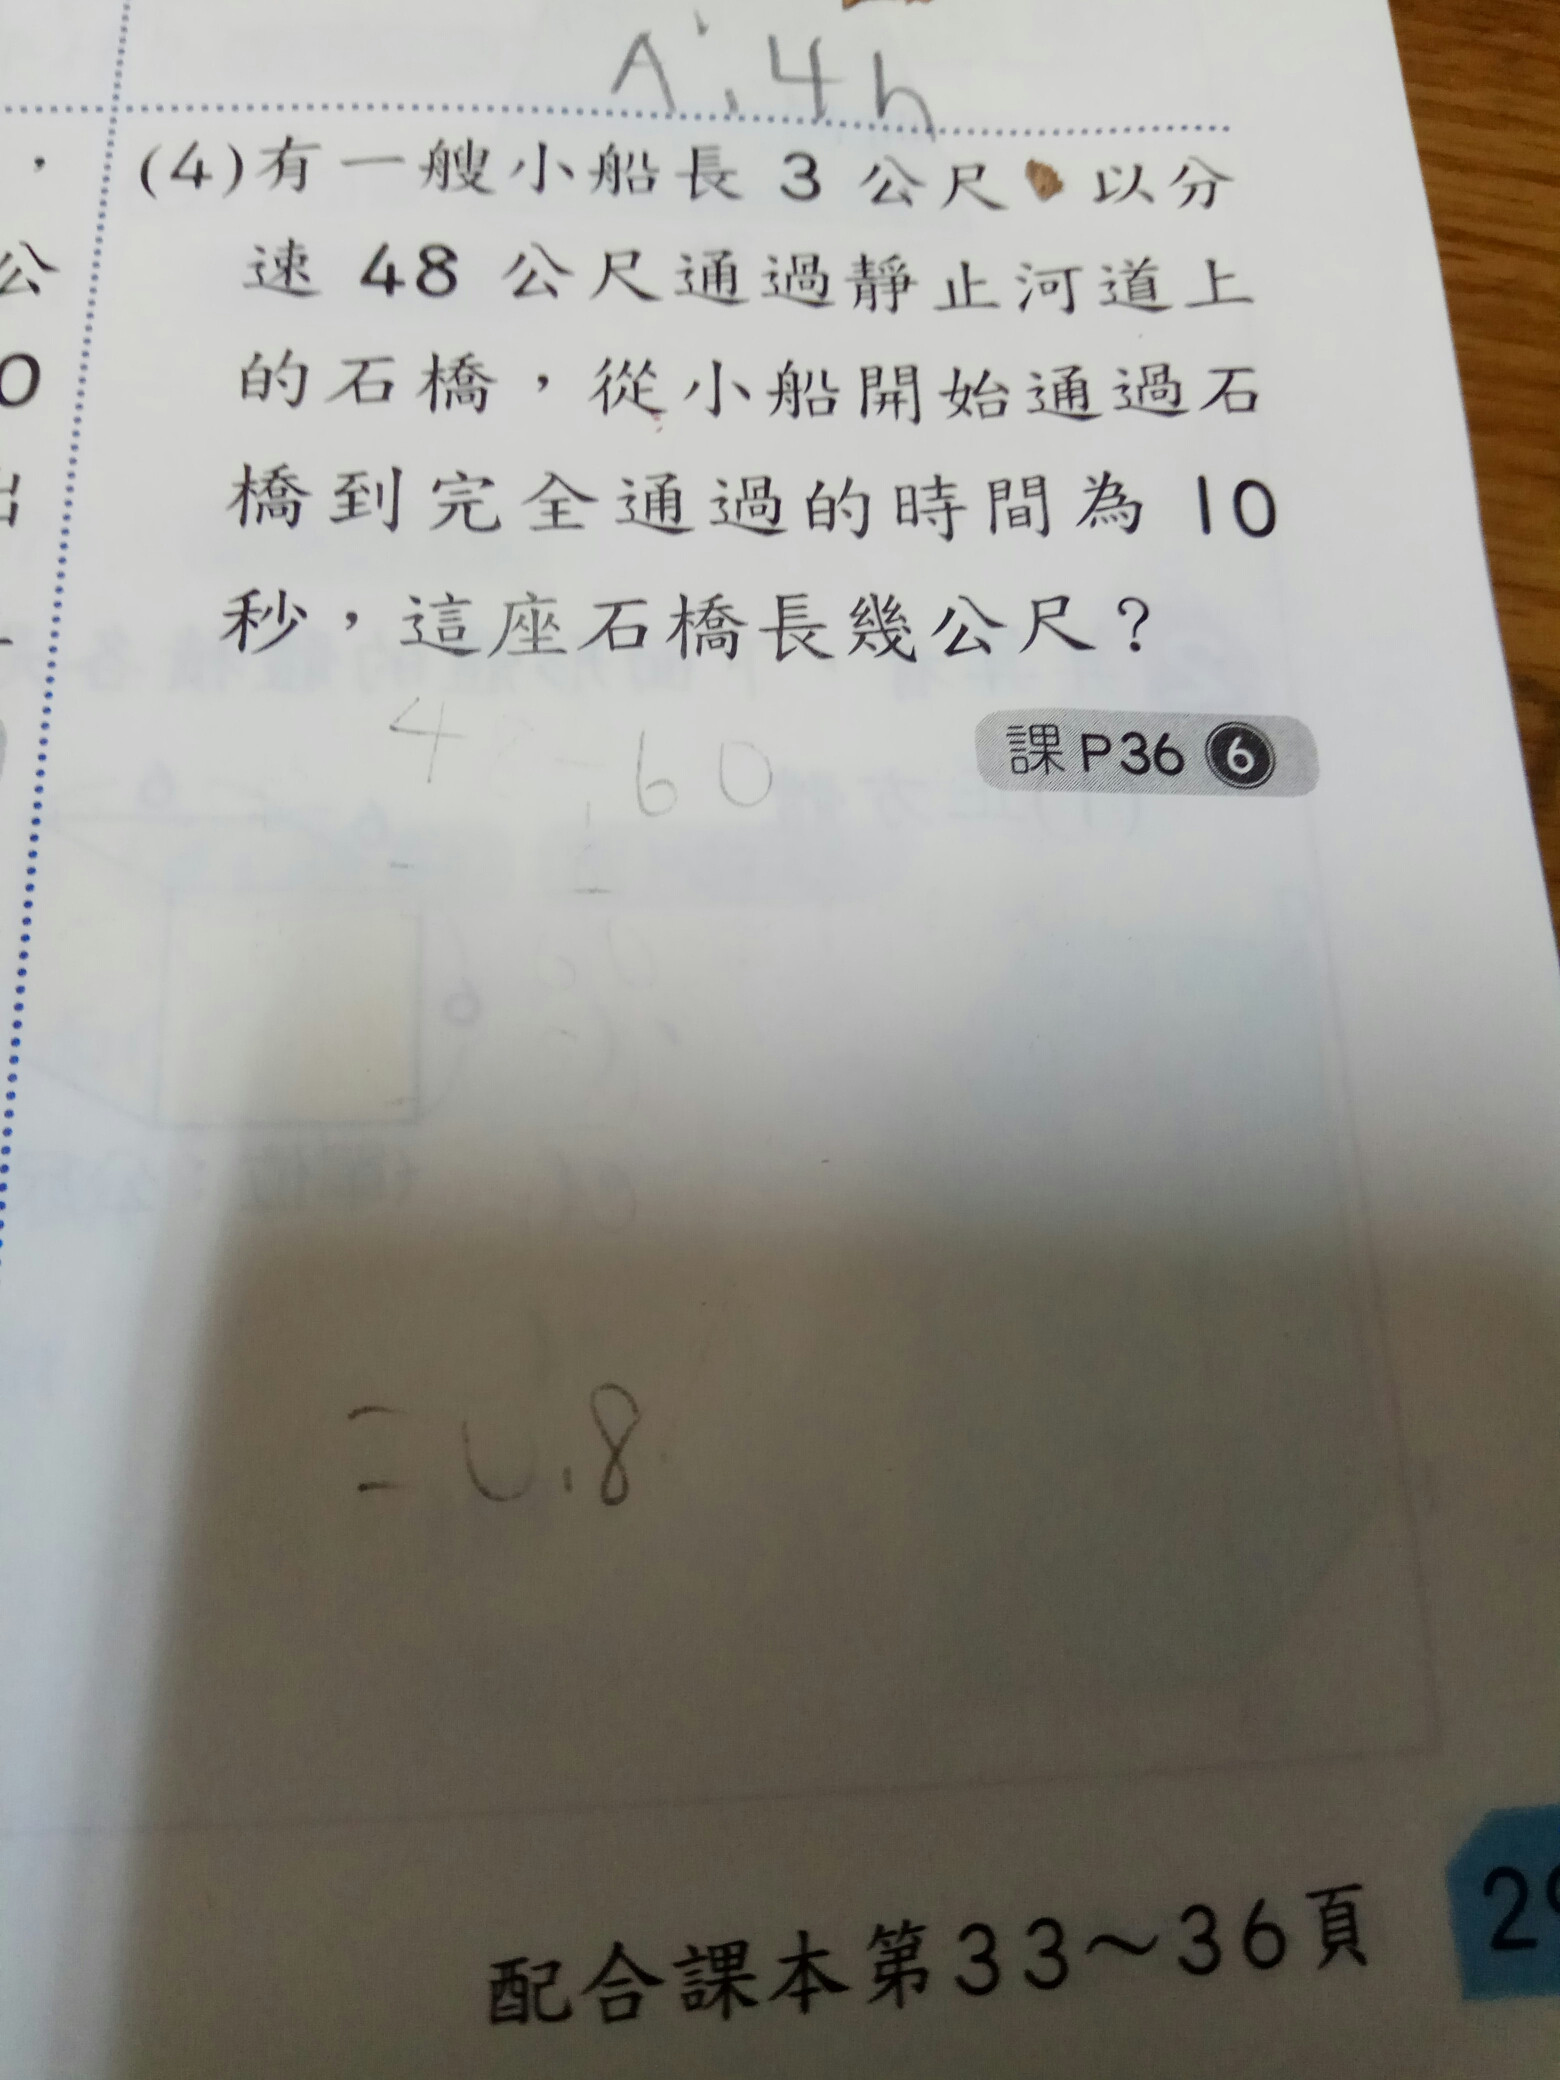 A:4h
(4)有一艘小船長 3 公尺 以分
速 48 公尺通過靜止河道上
公
的石橋，從小船開始通過石
0
橋到完全通過的時間為 10
秒，這座石橋長幾公尺？
60
課P36 6
=0.8
配合課本第33～36頁